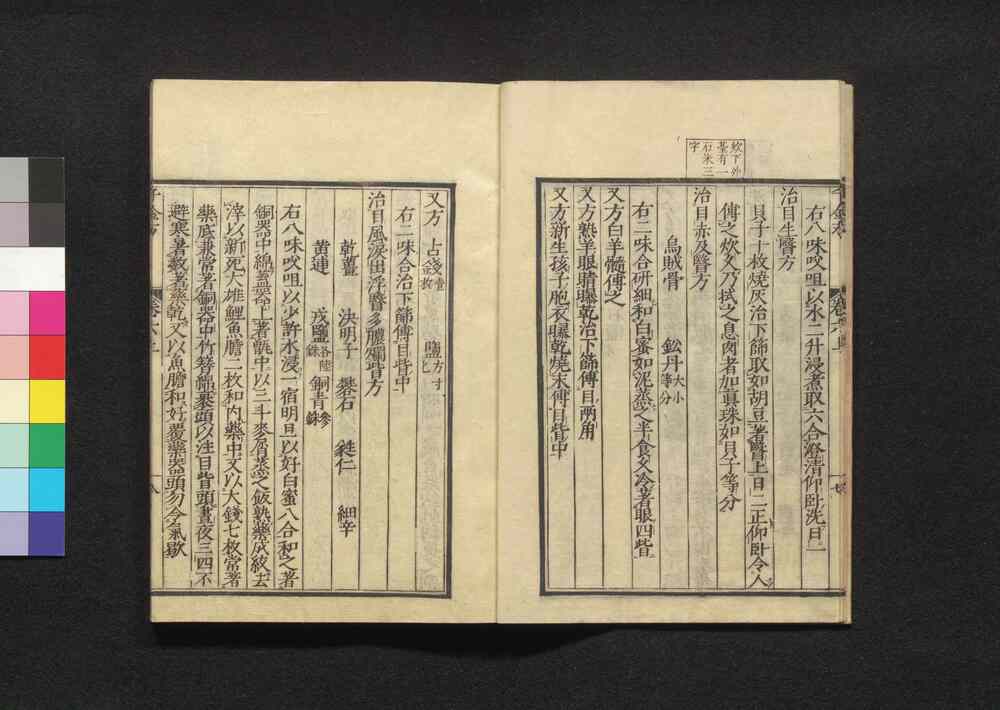 炊下外
臺有一
石米三
字
右八味㕮咀以水二升浸煮取六合澄清仰卧洗日一
治目生瞖方
貝子十枚燒灰治下篩取如胡豆著瞖上日二正仰卧令人
傅之炊久乃拭之息肉者加眞珠如貝子等分
治目赤及瞖方
烏賊骨 鈆丹大小等分
右二味合研細和白蜜如泥蒸之半食久冷著眼四眥
又方白羊髓傅之
又方熟羊眼睛曝乾治下篩傅目兩角
又方新生孩子胞衣曝乾燒末傅目眥中
又方 古錢壹枚 鹽方寸匕
右二味合治下篩傅目眥中
治目風淚出浮瞖多膿爛眥方
乾薑 決明子 礬石 蕤仁 細辛
黃連 戎鹽各陸銖 銅青參銖
右八味㕮咀以少許水浸一宿明旦以好白蜜八合和之著
銅器中綿蓋器上著甑中以三斗麥屑蒸之飯熟藥成絞去
滓以新死大雄鯉魚膽二枚和内藥中又以大錢七枚常著
藥底兼常著銅器中竹簪綿裹頭以注目眥頭晝夜三四不
避寒暑數著藥乾又以魚膽和好覆藥器頭勿令氣歇